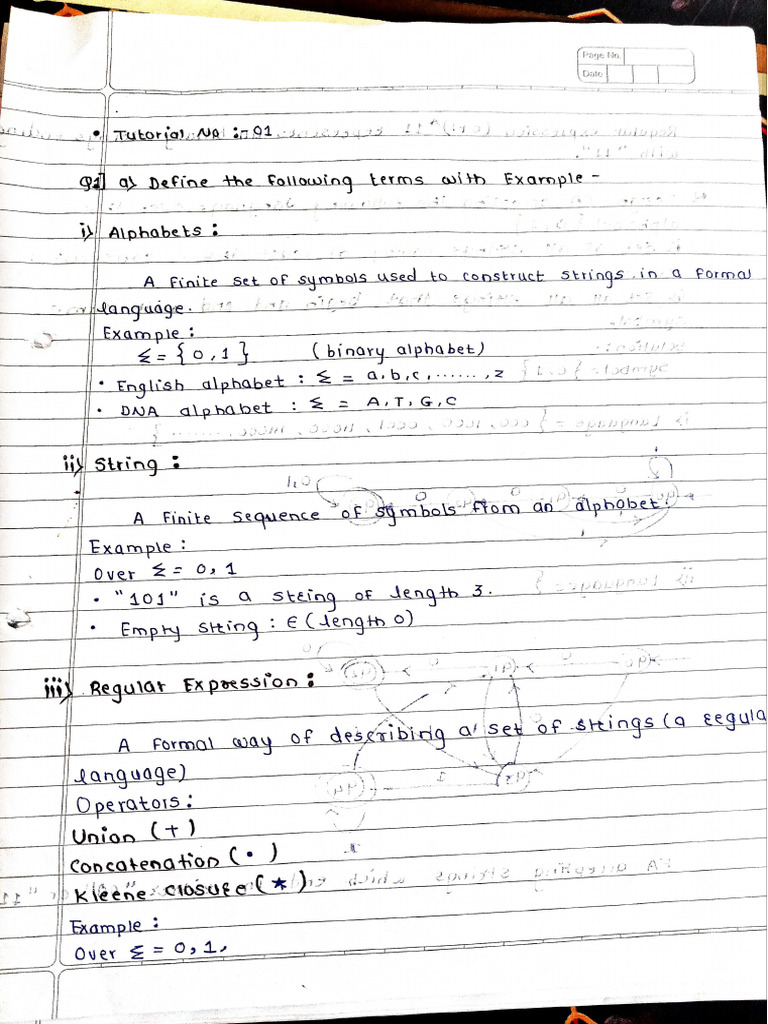 Page No.
Date
• Tutorial No :- 01
Q1] a) Define the following terms with Example -
i) Alphabets :
A finite set of symbols used to construct strings in a formal
language.
Example :
Σ = { 0 , 1 } (binary alphabet)
• English alphabet : Σ = a, b, c, ......, z
• DNA alphabet : Σ = A, T, G, C
ii) String :
A finite sequence of symbols from an alphabet.
Example :
Over Σ = 0, 1
• "101" is a string of length 3.
• Empty string : ∈ (length 0)
iii) Regular Expression :
A formal way of describing a set of strings (a regula
language)
Operators :
Union (+)
Concatenation ( • )
Kleene closure ( * )
Example :
Over Σ = 0, 1,